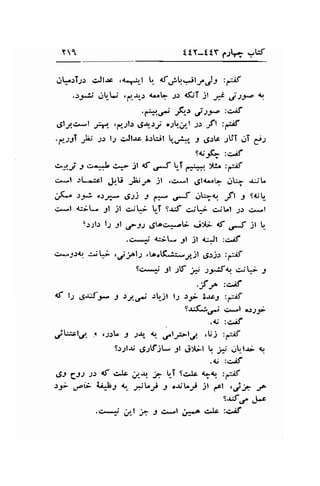 کتاب چهارم ۴۴۳-۴۴۲ ۲۱۹
گفتم: ولی مراقب‌باش که با اینهمه، عدالت درآدمیان
به صورتی غیر از آنکه در جامعه دیدیم، نمایان نشود.
گفت: صورتی دیگر نمی‌بینم.
گفتم: اگر در این‌باره تردیدی داریم، بهتر است‌برای
رفع آن آثار عادی و پیش‌پا افتادهٔ عدالت را در نظر آوریم.
گفت: چگونه؟
گفتم: مثلا ببینیم آیا کسی که از حیث طبیعت و تربیت
مانند چنان جامعه‌ای است، از هرنظر قابل اعتماد است
یانه؟ و اگر به‌چنان کسی سیم و زری سپرده شود ممکن
است در امانت خیانت کند؟ آیا خیانت از او ساخته است
یا از کسی که خلاف خاصیت‌های روحی او را دارد؟
گفت: البته از او ساخته نیست.
گفتم: دزدی ازپرستشگاه‌ها، راهزنی، خیانت به‌دوست
و خیانت به‌کشور نیز کار او نیست؟
گفت: هرگز.
گفتم: وعدهٔ خود را ازیاد نمی‌برد و سوگندی را که
خورده است نمی‌شکند؟
گفت: نه.
گفتم: زنا، بی‌احترامی به پدر و مادر، و بی‌اعتنائی
به خدایان نیز با اخلاق او سازگاری ندارد؟
گفت: نه.
گفتم: به‌چه علت؟ آیا جز بدین علت که در روح وی
هر جزئی، اعم از فرمانده و فرمانبر به وظیفهٔ خاص خود
عمل می‌کند؟
گفت: علت همین است و جز این نیست.